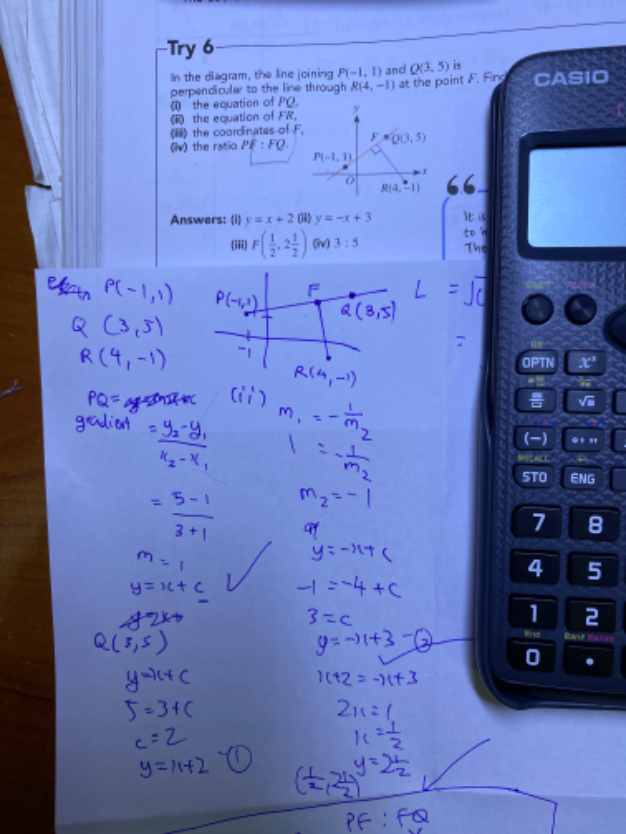 Try 6
In the diagram, the line joining P(−1, 1) and Q(3, 5) is
perpendicular to the line through R(4, −1) at the point F. Find
(i) the equation of PQ,
(ii) the equation of FR,
(iii) the coordinates of F,
(iv) the ratio PF : FQ.
y
F
Q(3, 5)
P(−1, 1)
O
x
R(4, −1)
Answers: (i) y = x + 2 (ii) y = −x + 3
(iii) F(1/2, 2 1/2) (iv) 3 : 5
It is
to
The
CASIO
OPTN
(−)
STO
ENG
RECALL
7 8
4 5
1 2
0 •
P(-1,1)
Q (3,5)
R(4,-1)
P(-1,1)
F
Q(3,5)
-1
R(4,-1)
L =
=
PQ=
gradient = y₂-y₁
x₂-x₁
= 5-1
3+1
m = 1
y=x+c
Q(3,5)
y=x+c
5=3+c
c=2
y=x+2 -①
(ii)
m₁ = - 1/m₂
1 = - 1/m₂
m₂=-1
y=-x+c
-1=-4+c
3=c
y=-x+3 -②
x+2=-x+3
2x=1
x=1/2
y=2 1/2
(1/2, 2 1/2)
PF : FQ